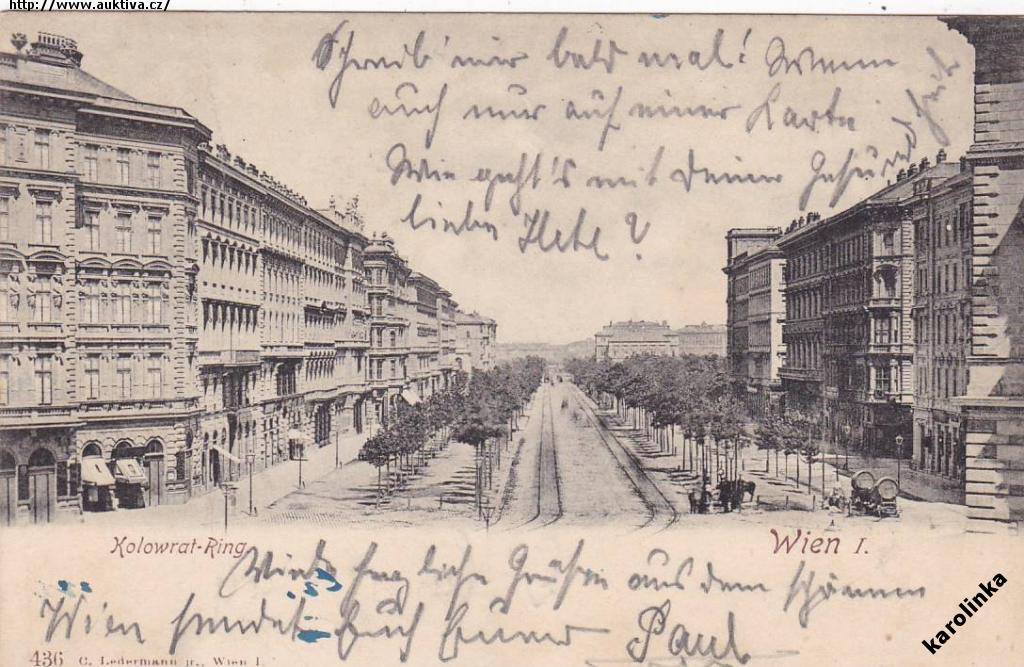 http://www.auktiva.cz/
Schreib' mir bald mal! Wenn
auch nur auf einer Karte
Wie geht's mit Deiner Gesundheit
lieber
Kolowrat-Ring.
Wien I.
Viele herzliche Grüße aus dem schönen
Wien sendet Euch Euer Paul
436 C. Ledermann jr., Wien I.
karolinka